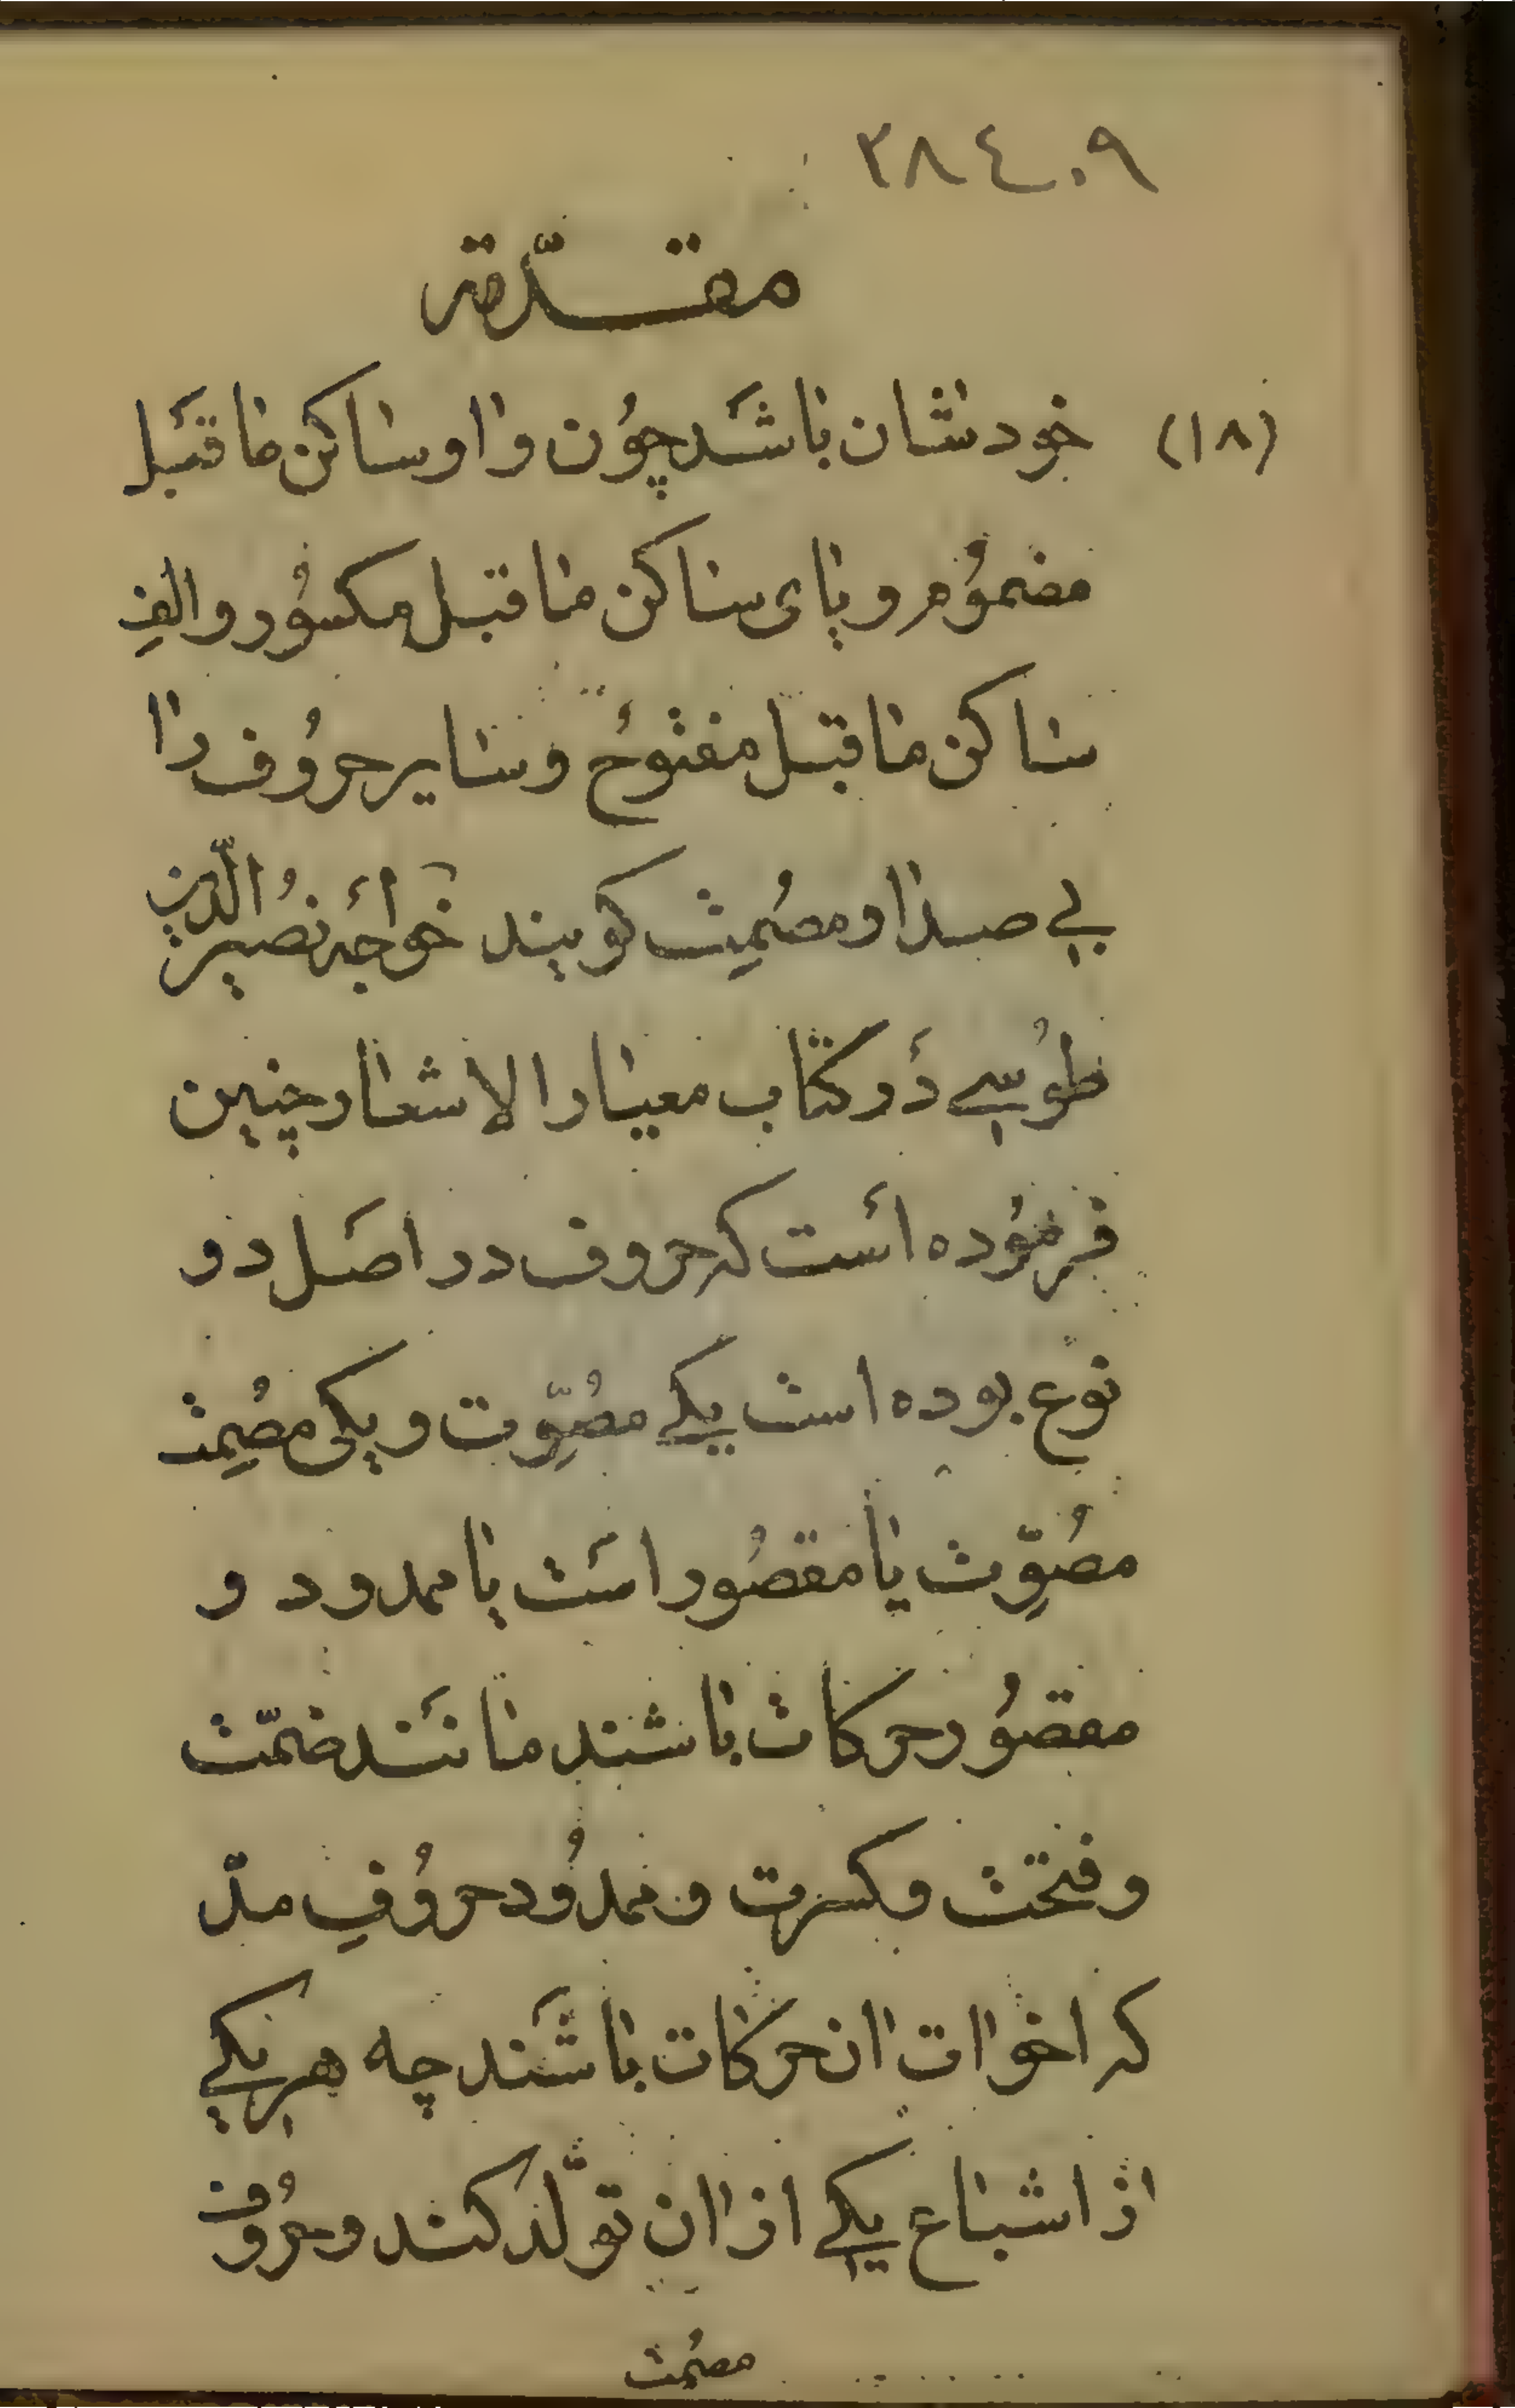 ٣٨٤٠٩
مقدّمة
(١٨) خودشان باشَد چوُن واو ساکن ماقَبل
مضموُم و یای ساکن ماقبل مکسوُر و الفِ
ساکن ماقبل مفتوُح و سایر حروُف را
بی صدا و مصُمِت کویند خواجَه نصُیر الدّین
طوُسی دَر کتاب معیار الاشعار چنین
فرموُده اَست که حروف در اصَل دو
نوع بوده است یکی مصُوِّت و یکی مصُمِت
مصُوِّت یا مقصُور اسَت یا ممدود و
مقصوُر حرکات باشند مانَند ضمّت
و فتحت و کسرت و ممدُود حروُفِ مدّ
که اخوات ان حرکات باشَند چه هر یکی
از اشباع یکی از ان تولَّد کند و حروُف
مصُمت